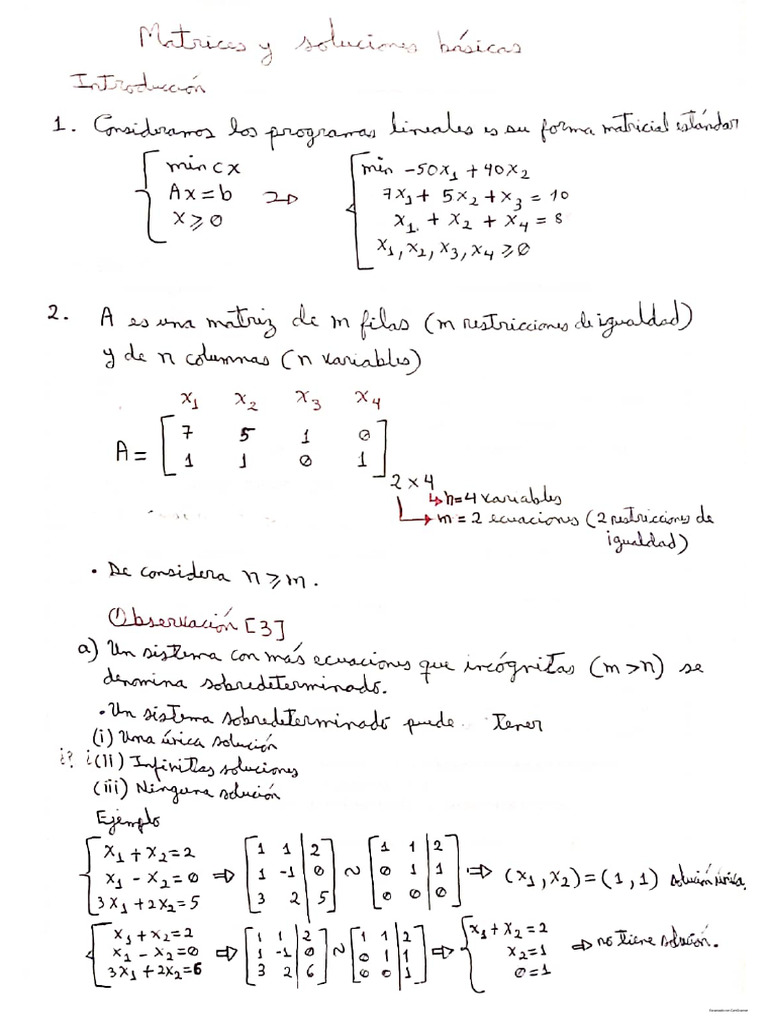 Matrices y soluciones básicas
Introducción
1. Consideramos los programas lineales es su forma matricial estándar
min cx
Ax=b
x≥0
⇒
min -50x₁ + 40x₂
7x₁ + 5x₂ + x₃ = 10
x₁ + x₂ + x₄ = 8
x₁, x₂, x₃, x₄ ≥ 0
2. A es una matriz de m filas (m restricciones de igualdad)
y de n columnas (n variables)
x₁ x₂ x₃ x₄
A = [7 5 1 0
1 1 0 1] 2 × 4
↳ n=4 variables
→ m = 2 ecuaciones (2 restricciones de
igualdad)
• Se considera n ≥ m.
Observación [3]
a) Un sistema con más ecuaciones que incógnitas (m > n) se
denomina sobredeterminado.
• Un sistema sobredeterminado puede tener
(i) Una única solución
¿? ¿(ii) Infinitas soluciones
(iii) Ninguna solución
Ejemplo
x₁ + x₂ = 2
x₁ - x₂ = 0
3x₁ + 2x₂ = 5
⇒ [1 1 | 2
1 -1 | 0
3 2 | 5]
~ [1 1 | 2
0 1 | 1
0 0 | 0]
⇒ (x₁, x₂) = (1, 1) solución única.
x₁ + x₂ = 2
x₁ - x₂ = 0
3x₁ + 2x₂ = 6
⇒ [1 1 | 2
1 -1 | 0
3 2 | 6]
~ [1 1 | 2
0 1 | 1
0 0 | 1]
⇒ x₁ + x₂ = 2
x₂ = 1
0 = 1
⇒ no tiene solución.
Escaneado con CamScanner